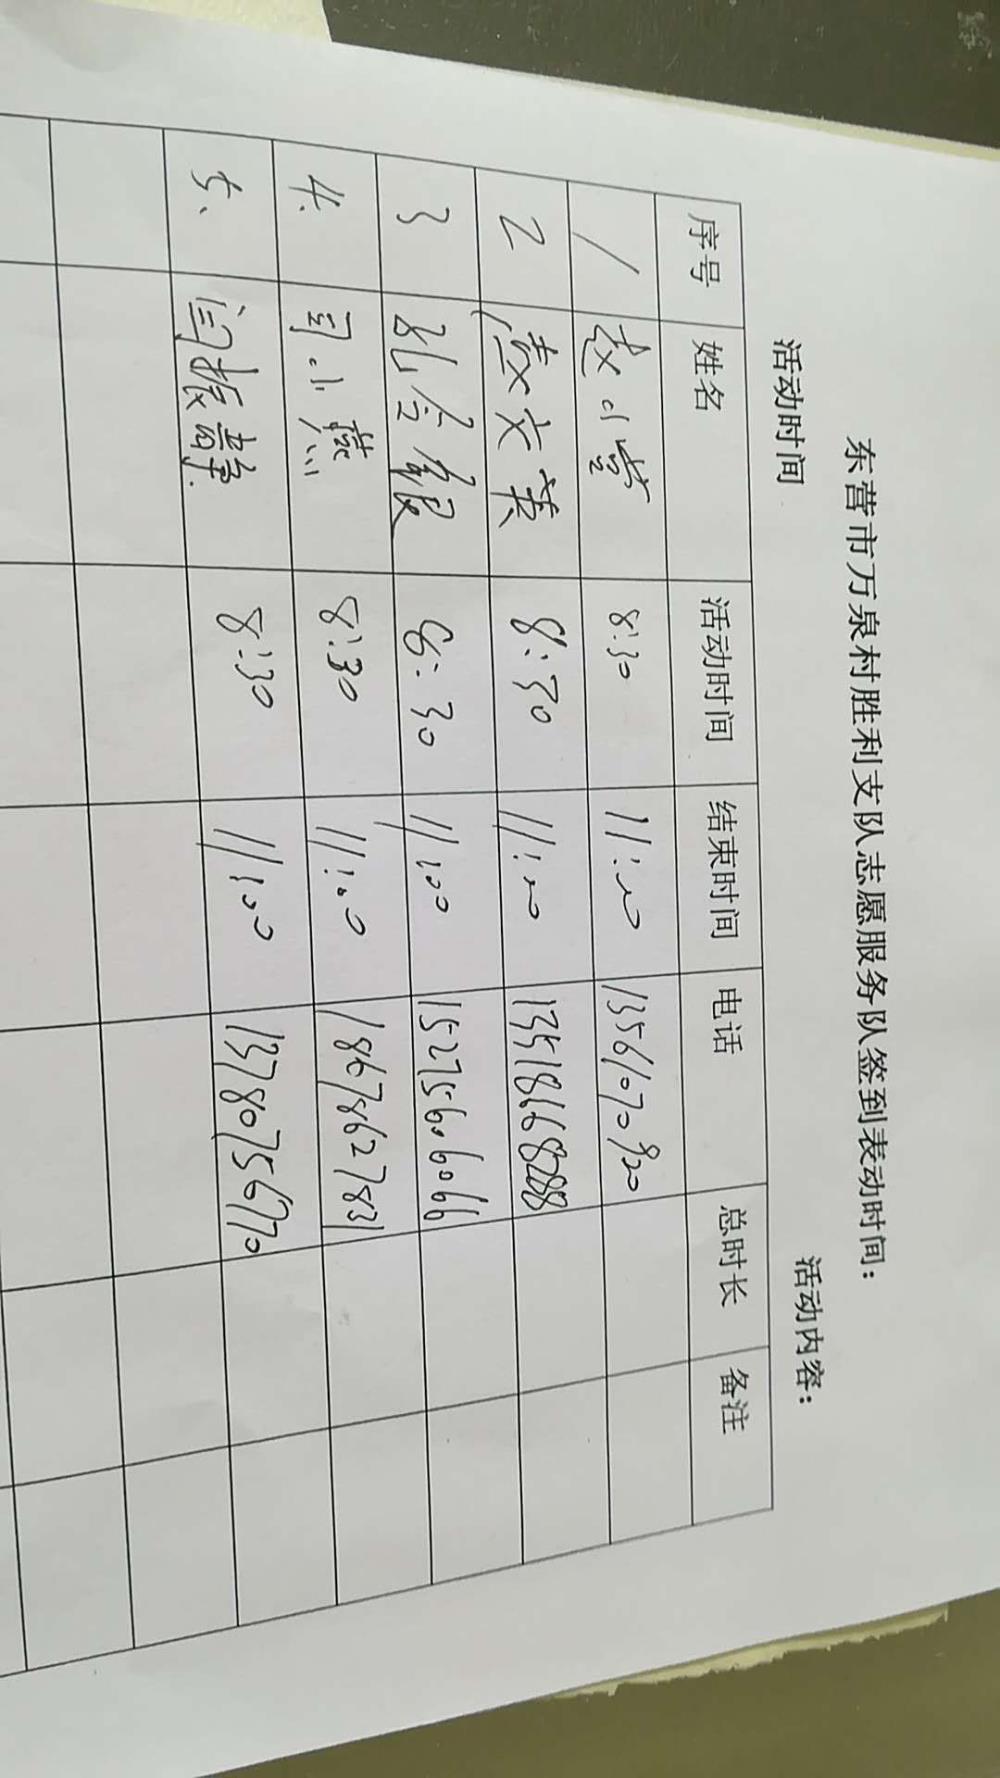 东营市万泉村胜利支队志愿服务队签到表动时间：
活动时间 活动内容：
序号 姓名 活动时间 结束时间 电话 总时长 备注
1 赵小营 8:30 11:00 13561070920
2 文英 8:30 11:00 13518668288
3 孔令银 8:30 11:00 15275606066
4. 司小燕 8:30 11:00 18678627831
5、 闫振静 8:30 11:00 13780756170